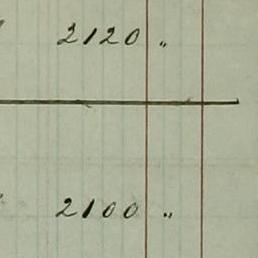 2120 "
2100 "